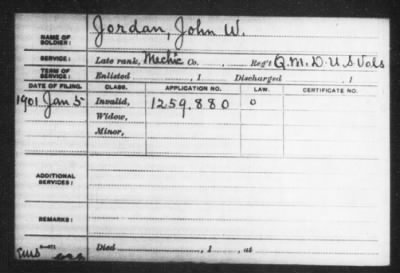 NAME OF SOLDIER: Jordan, John W.
SERVICE: Late rank, Mechic Co. , Reg't Q.M.D. U S Vols
TERM OF SERVICE: Enlisted , 1 Discharged , 1
DATE OF FILING. CLASS. APPLICATION NO. LAW. CERTIFICATE NO.
1901 Jan 5 Invalid, 1259.880 0
Widow,
Minor,
ADDITIONAL SERVICES:
REMARKS:
Died , 1 , at